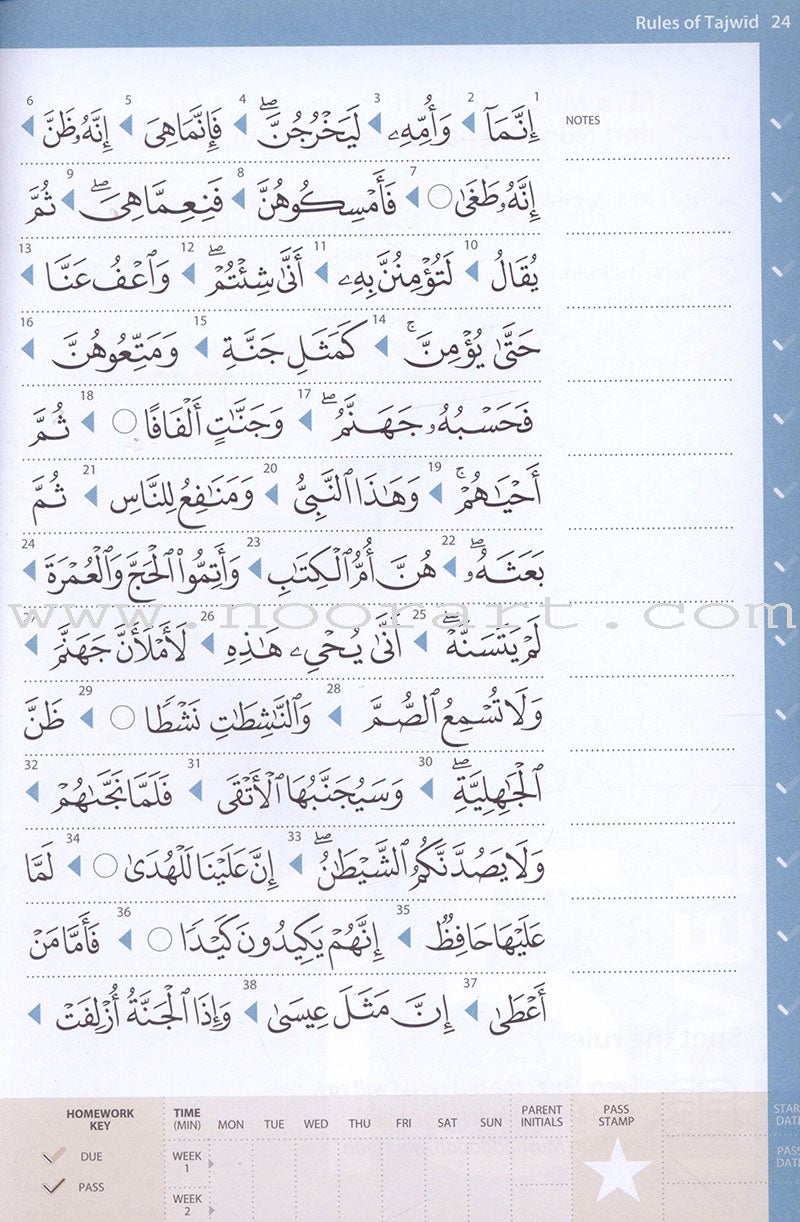 Rules of Tajwid 24
NOTES
1 إِنَّمَآ 2 وَأُمِّهِۦ 3 لَيَخْرُجُنَّۖ 4 فَإِنَّمَا هِىَ 5 إِنَّهُۥ ظَنَّ 6
إِنَّهُۥ طَغَىٰ ○ 7 فَأَمْسِكُوهُنَّ 8 فَنِعِمَّا هِىَۖ 9 ثُمَّ
يُقَالُ 10 لَتُؤْمِنُنَّ بِهِۦ 11 أَنَّىٰ شِئْتُمْۖ 12 وَٱعْفُ عَنَّا 13
حَتَّىٰ يُؤْمِنَّۚ 14 كَمَثَلِ جَنَّةِۭ 15 وَمَتِّعُوهُنَّ 16
فَحَسْبُهُۥ جَهَنَّمُۖ 17 وَجَنَّٰتٍ أَلْفَافًا ○ 18 ثُمَّ
أَحْيَٰهُمْۚ 19 وَهَٰذَا ٱلنَّبِىُّ 20 وَمَنَٰفِعُ لِلنَّاسِ 21 ثُمَّ
بَعَثَهُۥۖ 22 هُنَّ أُمُّ ٱلْكِتَٰبِ 23 وَأَتِمُّوا۟ ٱلْحَجَّ وَٱلْعُمْرَةَ 24
www.noorart.com
لَمْ يَتَسَنَّهْۖ 25 أَنَّىٰ يُحْىِۦ هَٰذِهِ 26 لَأَمْلَأَنَّ جَهَنَّمَ 27
وَلَا تُسْمِعُ ٱلصُّمَّ 28 وَٱلنَّٰشِطَٰتِ نَشْطًا ○ 29 ظَنَّ
ٱلْجَٰهِلِيَّةِۖ 30 وَسَيُجَنَّبُهَا ٱلْأَتْقَى 31 فَلَمَّا نَجَّىٰهُمْ 32
وَلَا يَصُدَّنَّكُمُ ٱلشَّيْطَٰنُۖ 33 إِنَّ عَلَيْنَا لَلْهُدَىٰ ○ 34 لَمَّا
عَلَيْهَا حَافِظٌ 35 إِنَّهُمْ يَكِيدُونَ كَيْدًا ○ 36 فَأَمَّا مَنْ
أَعْطَىٰ 37 إِنَّ مَثَلَ عِيسَىٰ 38 وَإِذَا ٱلْجَنَّةُ أُزْلِفَتْ
HOMEWORK KEY
DUE
PASS
TIME (MIN) MON TUE WED THU FRI SAT SUN PARENT INITIALS PASS STAMP
WEEK 1
WEEK 2